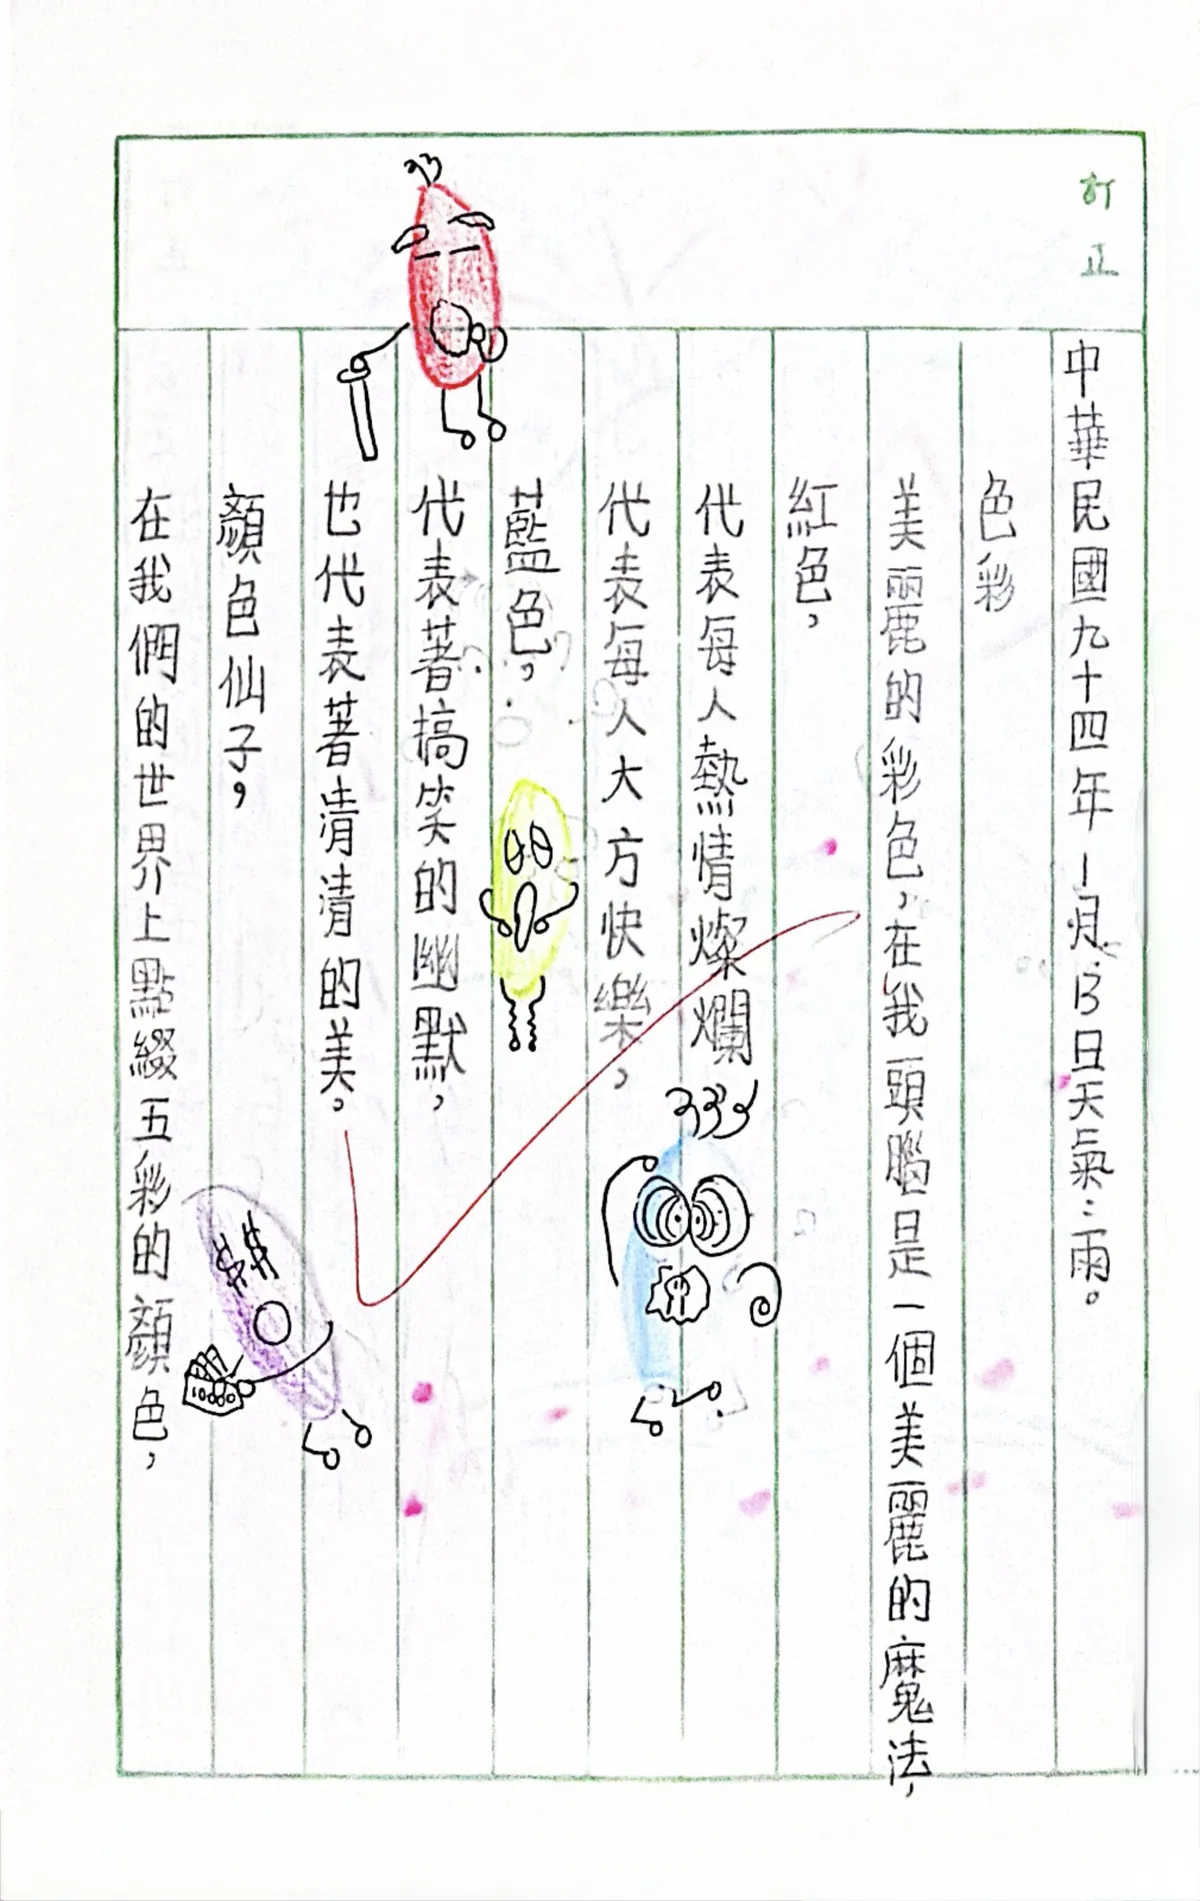 訂正
中華民國九十四年1月13日天氣:雨。
色彩
美麗的彩色,在我頭腦是一個美麗的魔法,
紅色,
代表每人熱情燦爛
代表每人大方快樂,
藍色,
代表著搞笑的幽默,
也代表著清清的美。
顏色仙子,
在我們的世界上點綴五彩的顏色,